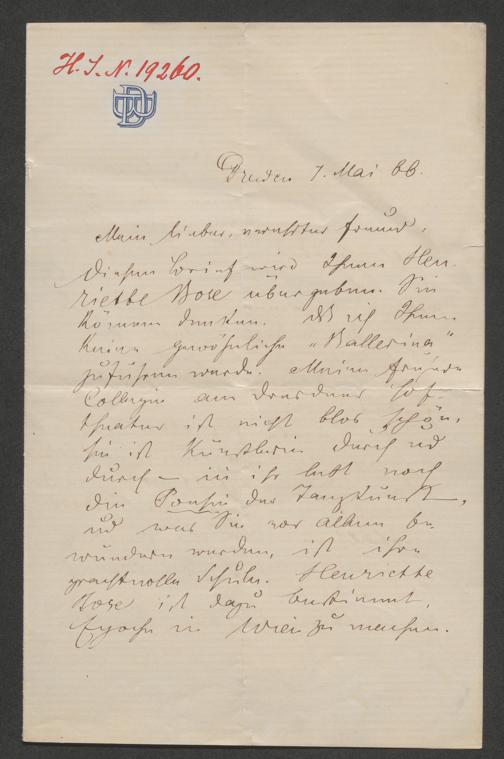 H. I. N. 19260.
Dresden 7. Mai 66.
Mein lieber, verehrter Freund,
Diesen Brief wird Ihnen Hen-
riette Bose übergeben. Sie
können denken, daß ich Ihnen
keine gewöhnliche „Ballerina"
zuführen werde. Meine
Collegin am Dresdner Hof-
theater ist nicht blos schön,
sie ist Künstlerin durch und
durch – in ihr lebt noch
die Poesie der Tanzkunst,
und was Sie vor Allem be-
wundern werden, ist ihre
prachtvolle Schule. Henriette
Bose ist dazu bestimmt,
Epoche in Wien zu machen.